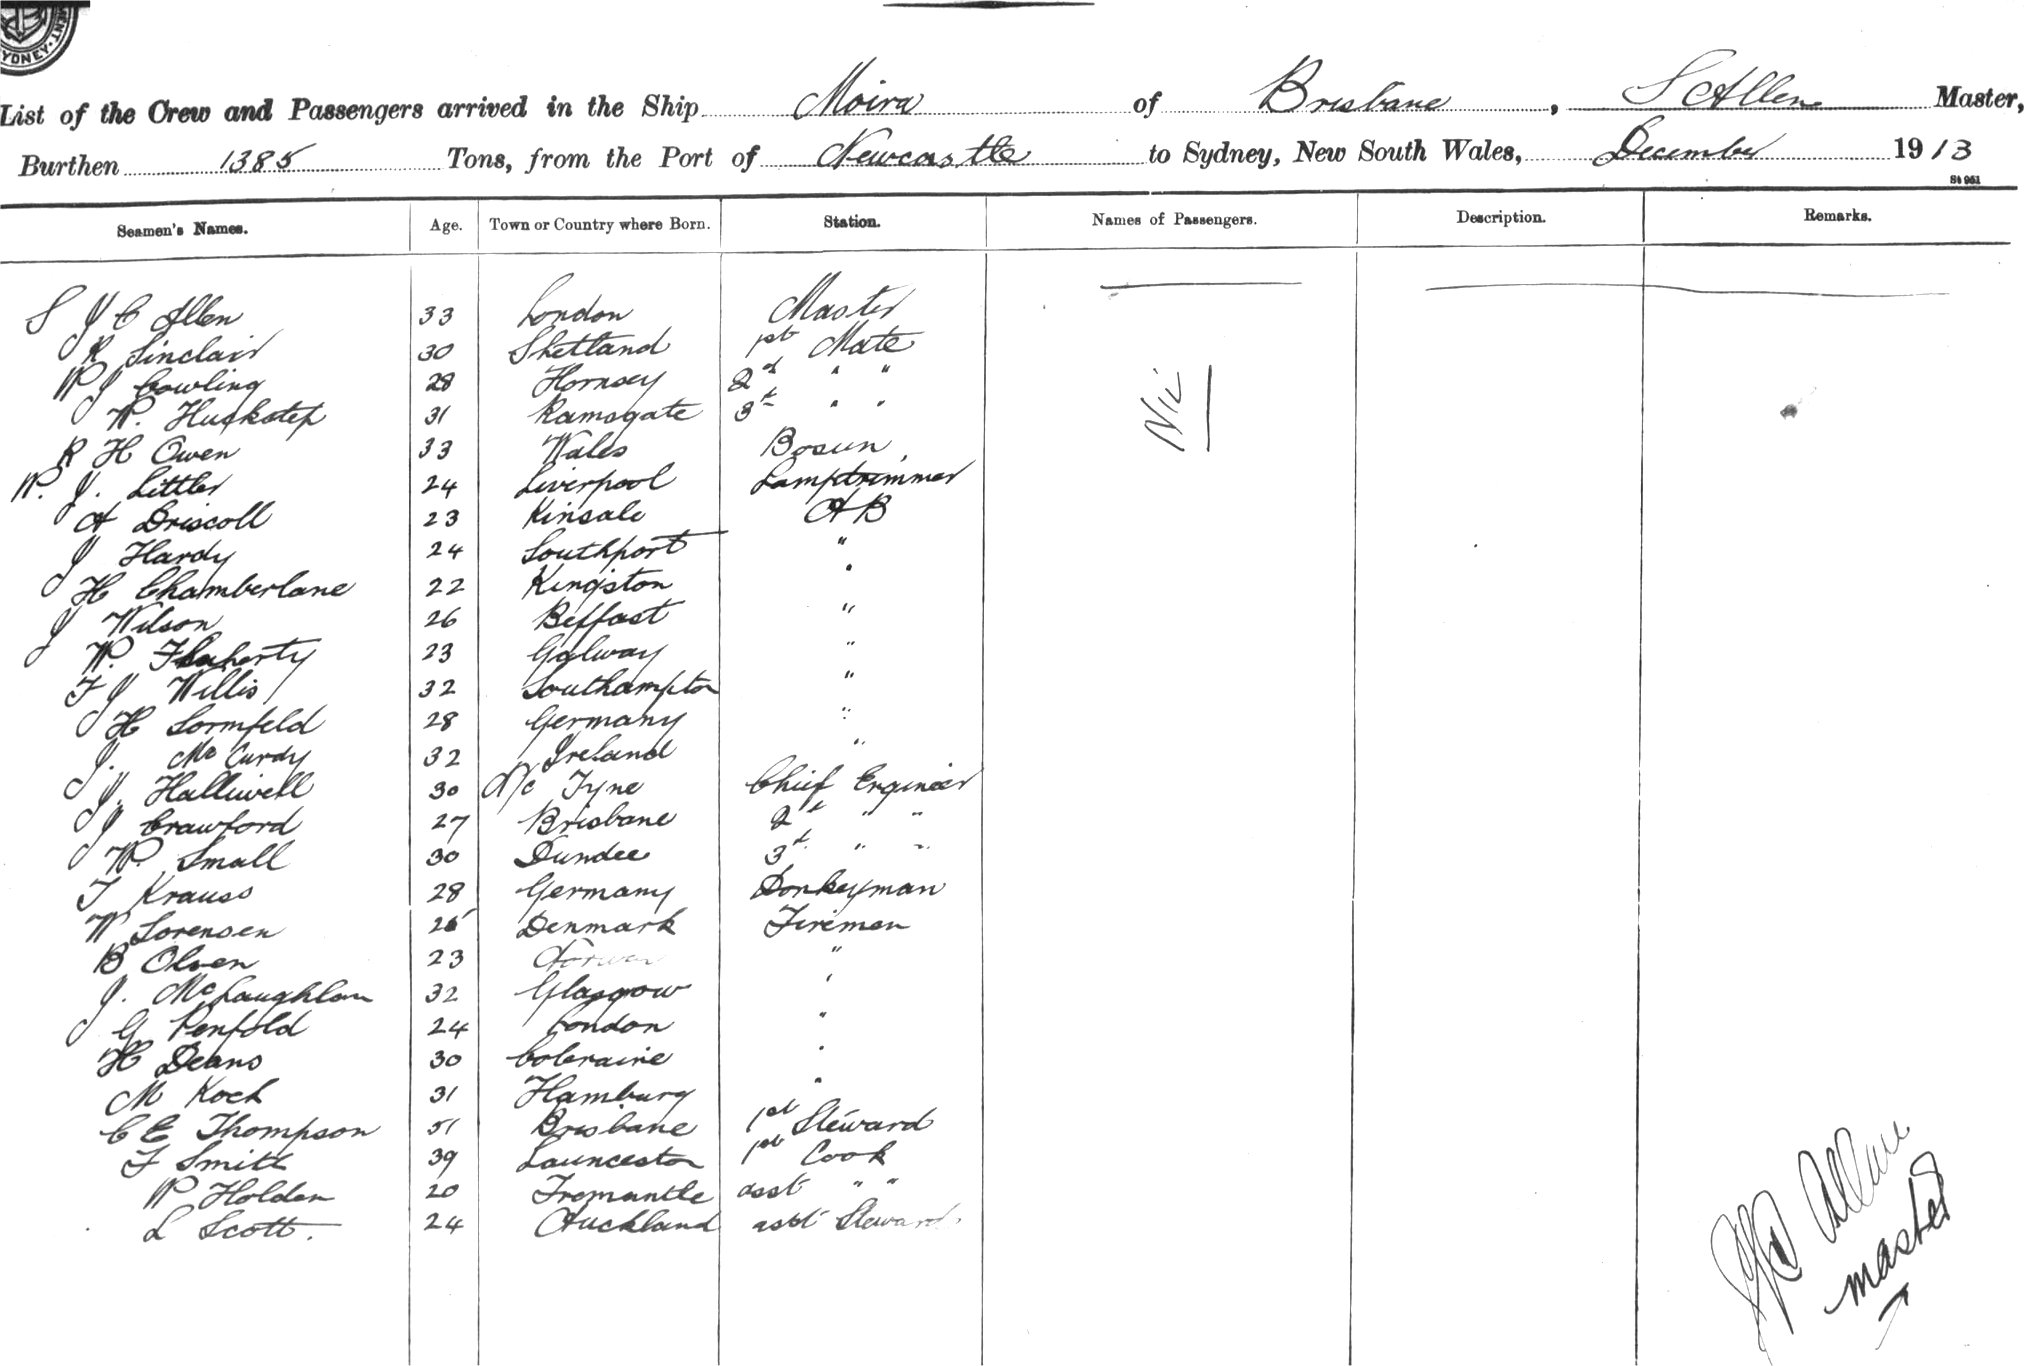 MENT · SYDNEY ·
List of the Crew and Passengers arrived in the Ship Moira of Brisbane, S Allen Master,
Burthen 1385 Tons, from the Port of Newcastle to Sydney, New South Wales, December 1913
St 961
Seamen's Names. Age. Town or Country where Born. Station. Names of Passengers. Description. Remarks.
S J C Allen 33 London Master
R Sinclair 30 Shetland 1st Mate
W J Cowling 28 Hornsey 2d " "
W. Huckstep 31 Ramsgate 3d " "
Nil
R H Owen 33 Wales Bosun
W. J. Littler 24 Liverpool Lamptrimmer
A Driscoll 23 Kinsale AB
J Hardy 24 Southport "
H Chamberlane 22 Kingston "
J Wilson 26 Belfast "
W. Flaherty 23 Galway "
F J Willis 32 Southampton "
H Sormfeld 28 Germany "
J. McCurdy 32 Ireland "
J. Halliwell 30 N/c Tyne Chief Engineer
J Crawford 27 Brisbane 2d " "
W. Small 30 Dundee 3d " "
T Krauss 28 Germany Donkeyman
W Sorensen 25 Denmark Fireman
B Olsen 23 Norway "
J. McLaughlan 32 Glasgow "
G Penfold 24 London "
H Deans 30 Coleraine "
M Koch 31 Hamburg "
C E Thompson 51 Brisbane 1st Steward
F Smith 39 Launceston 1st Cook
W Holden 20 Fremantle asst " "
L Scott. 24 Auckland asst Steward
SJC Allen
Master